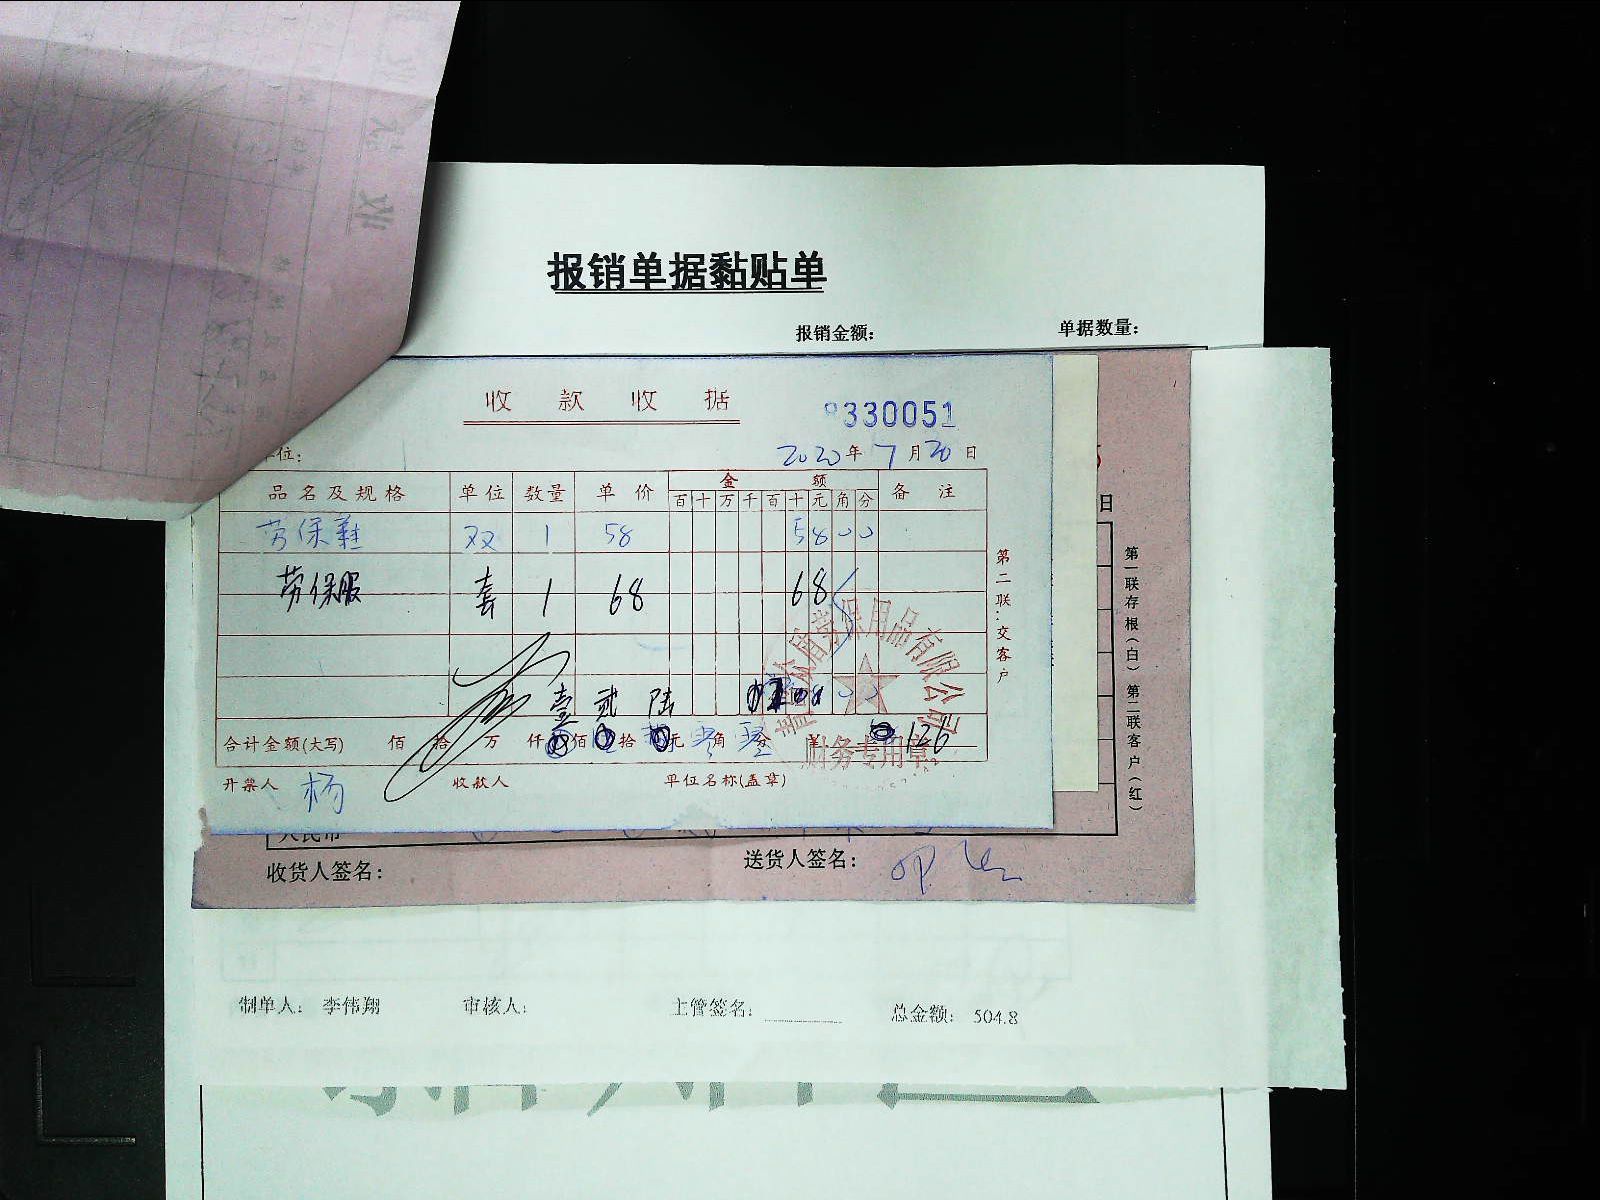 报销单据黏贴单
报销金额： 单据数量：
收款收据
330051
位： 2020年7月20日
品名及规格 单位 数量 单价 金额 备注
百十万千百十元角分
劳保鞋 双 1 58 58 00
劳保服 套 1 68 68
壹 贰 陆
合计金额(大写) 佰 拾 万 仟 佰 拾 元 零角 零分 ¥ 126
开票人 杨 收款人 单位名称(盖章)
第二联：交客户
劳保用品有限公司
财务专用章
日
第一联存根(白) 第二联客户(红)
人民币
收货人签名： 送货人签名：
制单人： 李伟翔 审核人： 主管签名： 总金额： 504.8